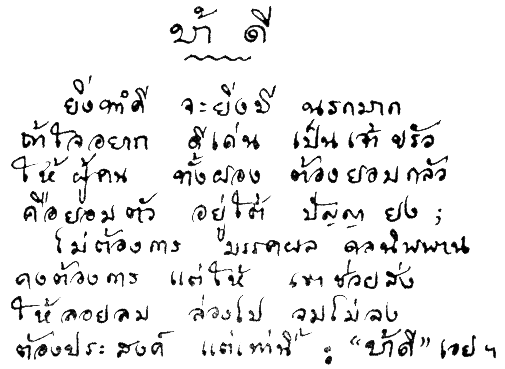 บ้า ดี
ยิ่งทำดี จะยิ่งมี นรกมาก
ถ้าใจอยาก ดีเด่น เป็นเจ้าขรัว
ให้ผู้คน ทั้งผอง ต้องยอมกลัว
คือยอมตัว อยู่ใต้ ปัญญา ยง ;
ไม่ต้องการ มรรคผล ดลนิพพาน
คงต้องการ แต่ให้ เขาช่วยส่ง
ให้ลอยลม ล่องไป จมไม่ลง
ต้องประสงค์ แต่เท่านี้ : “บ้าดี” เอย ฯ